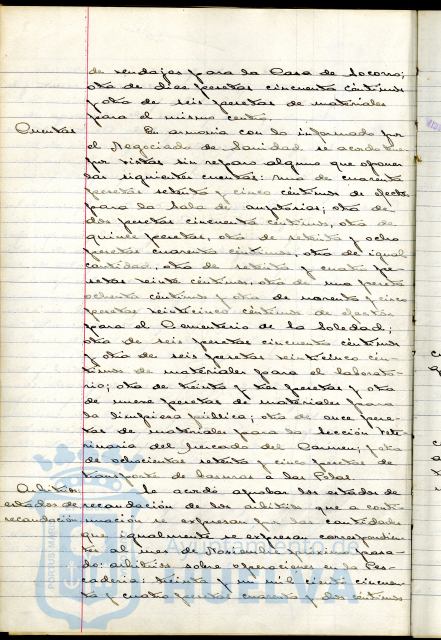 de vendajes para la Casa de Socorro;
otra de diez pesetas cincuenta céntimos
y otra de seis pesetas de materiales
para el mismo centro.
Cuentas
En armonía con lo informado por
el Negociado de Sanidad se acordó
por vistas sin reparo alguno que oponer
las siguientes cuentas: una de cuarenta
pesetas setenta y cinco céntimos de efectos
para la Sala de autopsias; otra de
dos pesetas cincuenta céntimos, otra de
quince pesetas, otra de setenta y ocho
pesetas cuarenta céntimos, otra de igual
cantidad, otra de setenta y cuatro pe-
setas veinte céntimos, otra de una peseta
ochenta céntimos y otra de noventa y cinco
pesetas veinticinco céntimos de efectos
para el Cementerio de la Soledad;
otra de seis pesetas cincuenta céntimos
y otra de seis pesetas veinticinco cén-
timos de materiales para el laborato-
rio; otra de treinta y tres pesetas y otra
de nueve pesetas de materiales para
la limpieza pública; otra de once pese-
tas de materiales para la Sección Vete-
rinaria del Mercado del Carmen; y otra
de ochocientas setenta y cinco pesetas de
transporte de basuras a las Colas.
Arbitrios
estados de
recaudación
Se acordó aprobar los estados de
recaudación de los arbitrios que a conti-
nuación se expresan por las cantidades
que igualmente se expresan correspondien-
tes al mes de Noviembre pasa-
do: arbitrios sobre operaciones en la Pes-
cadería: treinta y un mil ciento cincuen-
ta y cuatro pesetas cuarenta y dos céntimos
Ayuntamiento de
HUELVA